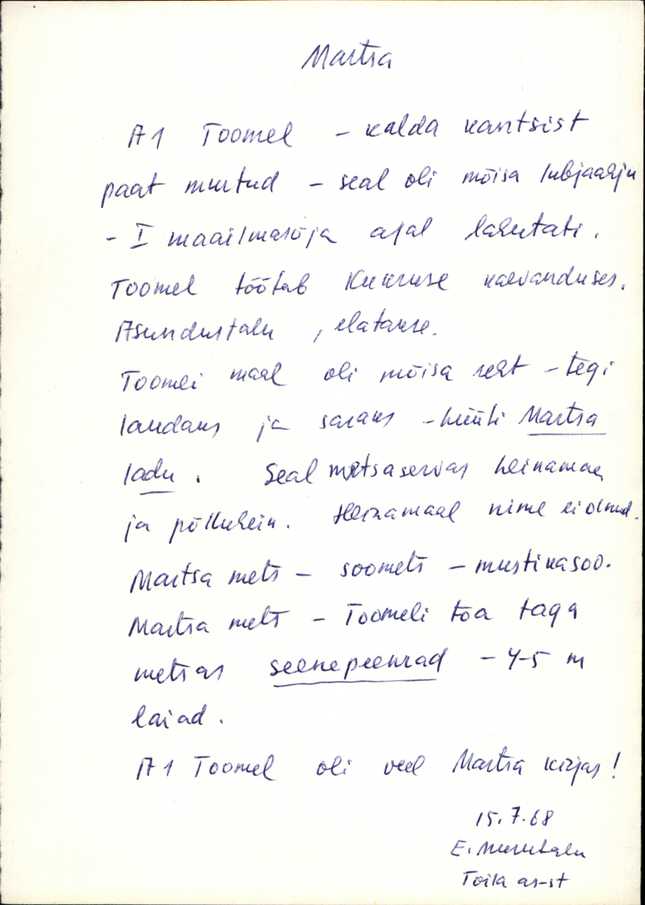 Martsa
A1 Toomel - kalda kantsist
paat murtud - seal oli mõisa lubjaahju
- I maailmasõja ajal lahutati.
Toomel töötab Kukruse kaevanduses.
Asundustalu, elatakse.
Toomeli maal oli mõisa reht - tegi
laudaks ja saraks - hüüti Martsa
ladu. Seal metsaservas heinamaa
ja põlluhein. Heinamaal nime ei olnud.
Martsa mets - soomets - mustikasoo.
Martsa mets - Toomeli toa taga
metsas seenepeenrad - 4-5 m
laiad.
A1 Toomel oli veel Martsa kirjas!
15.7.68
E.
Toila as-st